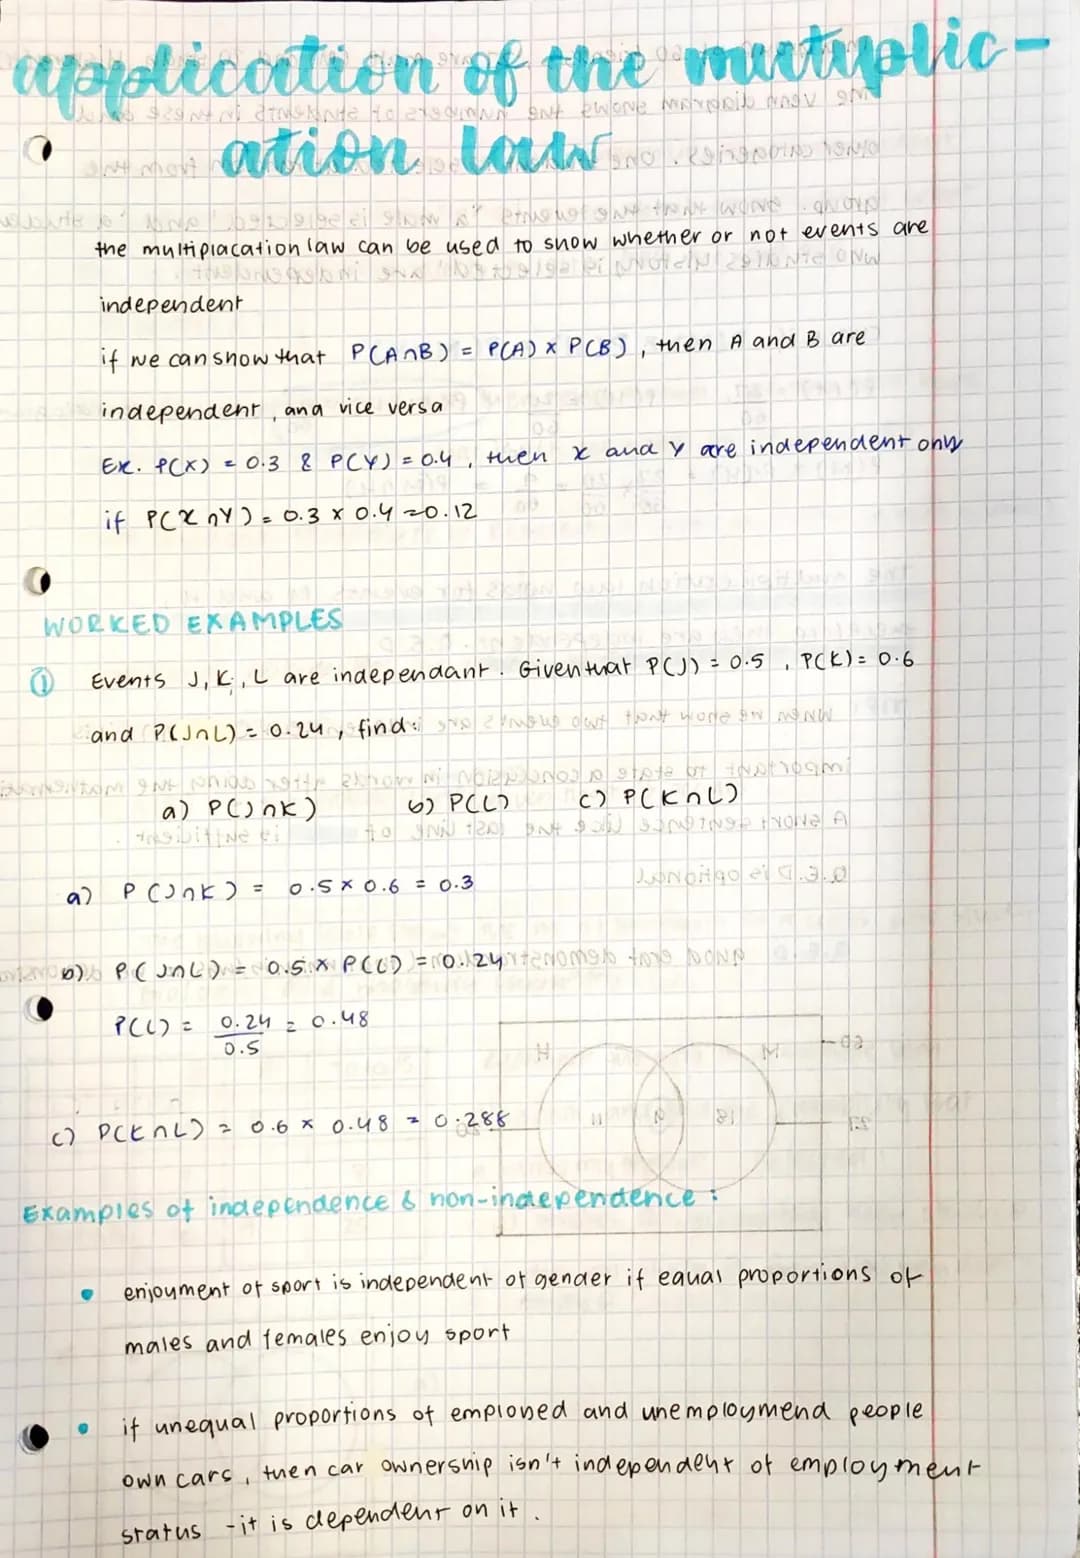 application of the multiplic-
ation law
the multiplacation law can be used to show whether or not events are
independent
if we can show that P(A∩B) = P(A) × P(B), then A and B are
independent, and vice versa
Ex. P(X) = 0.3 & P(Y) = 0.4, then x and y are independent only
if P(X∩Y) = 0.3 × 0.4 = 0.12
WORKED EXAMPLES
① Events J, K, L are independant. Given that P(J) = 0.5, P(K) = 0.6
and P(J∩L) = 0.24, find:
a) P(J∩K) b) P(L) c) P(K∩L)
a) P(J∩K) = 0.5 × 0.6 = 0.3
b) P(J∩L) = 0.5 × P(L) = 0.24
P(L) = 0.24/0.5 = 0.48
c) P(K∩L) = 0.6 × 0.48 = 0.288
Examples of independence & non-independence:
• enjoyment of sport is independent of gender if equal proportions of
males and females enjoy sport
• if unequal proportions of employed and unemploymend people
own cars, then car ownership isn't independent of employment
status - it is dependent on it.